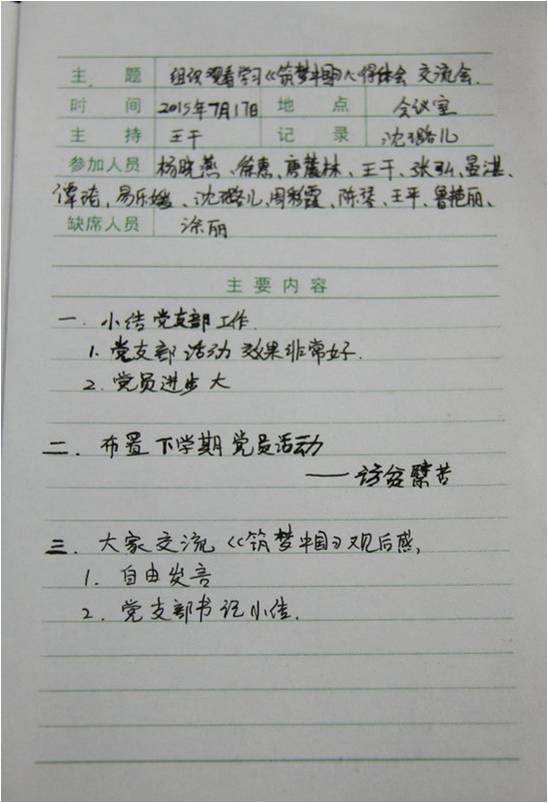 主 题 组织观看学习《筑梦中国》心得体会 交流会.
时 间 2015年7月17日 地 点 会议室
主 持 王干 记 录 沈璐儿
参加人员 杨晓燕、徐惠、唐麓林、王干、张弘、晏湛、
谭琦、易乐娥、沈璐儿、周彩霞、陈琴、王平、鲁艳丽、
缺席人员 涂丽
主 要 内 容
一. 小结党支部工作.
1. 党支部活动 效果非常好.
2. 党员进步大
二. 布置下学期党员活动
——访贫慰苦
三. 大家交流《筑梦中国》观后感,
1. 自由发言
2. 党支部书记小结.